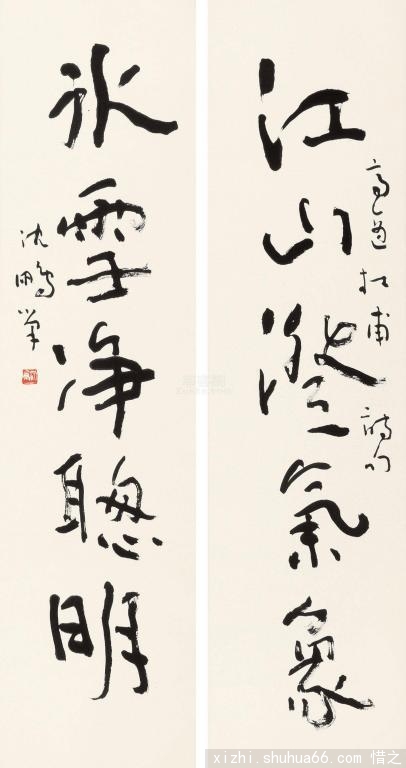 江山澄氣象
高適杜甫詩句
冰雪净聰明
沈鵬筆
xizhi.shuhua66.com 惜之